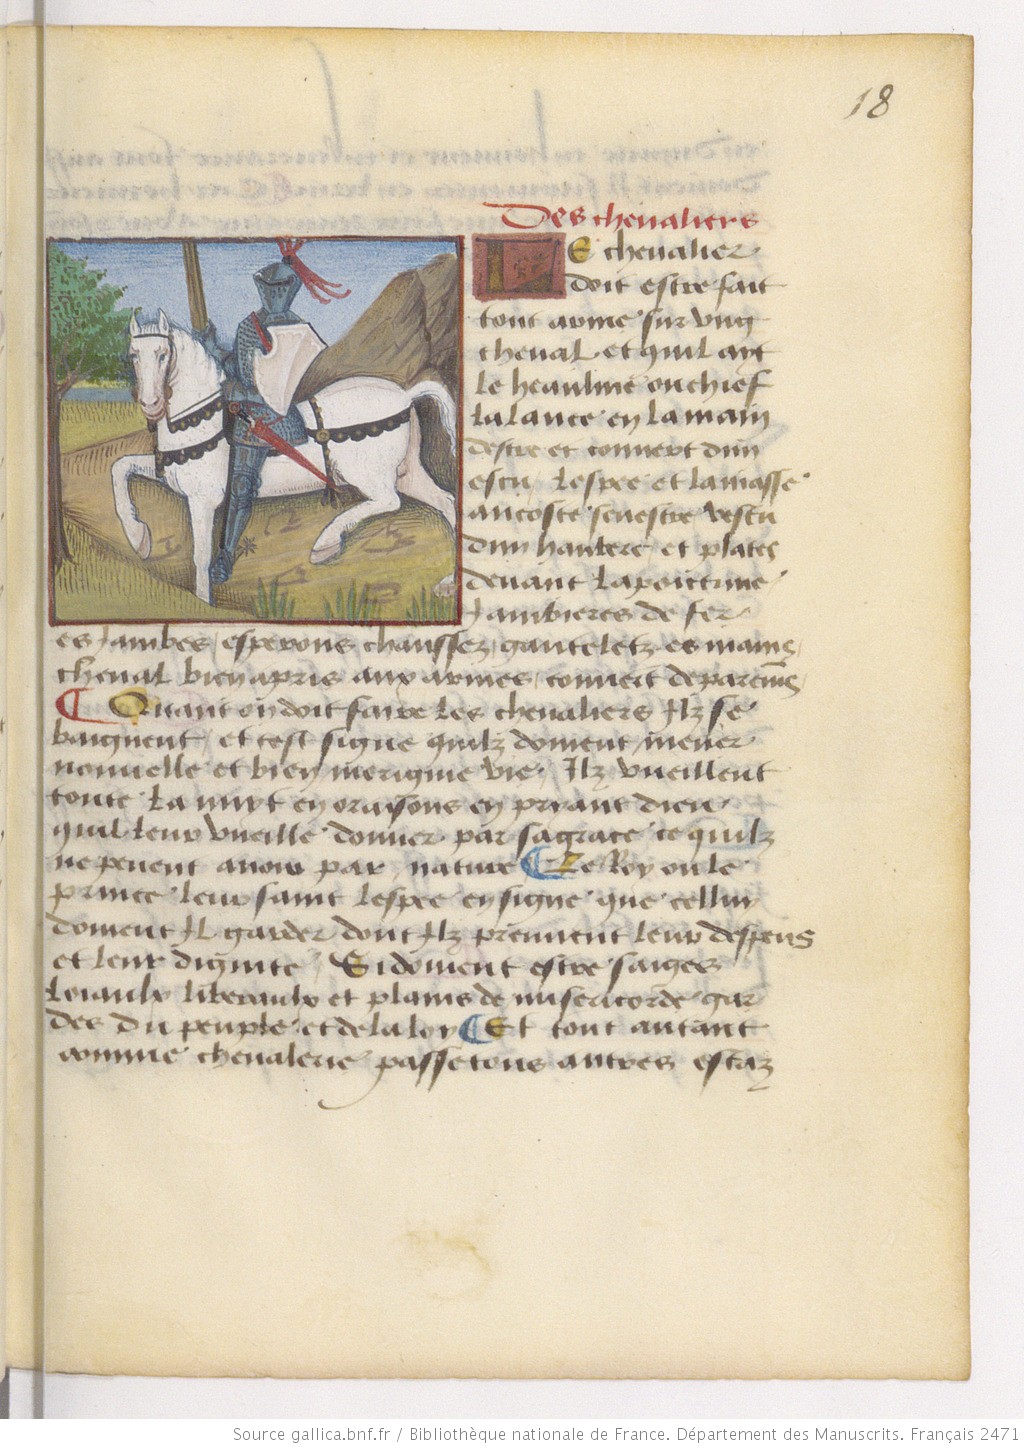 18
Des chevaliers
LE chevalier
doit estre fait
tout arme sur vng
cheual et quil ayt
le heaulme ou chief
la lance en la main
destre et couuert dun
escu lespee et la masse
au coste senestre vestu
dun haubert et plates
deuant la poictrine
Jambieres de fer
es Jambes esperons chaussez ganteletz es mains
cheual bien apris aux armes couuert de paremẽs
Quant on doit faire les cheualiers Ilz se
baignent et cest signe quilz doiuent mener
nouuelle et bien moriginee vie Ilz vueillent
toute la nuyt en oraisons en pryant dieu
quil leur vueille donner par sa grace ce quilz
ne peuent auoir par nature Le Roy ou le
prince leur saint lespee en signe que celluy
doiuent Il garder dont Ilz prennent leur despens
et leur dignite Si doiuent estre saiges
loiaulx liberaulx et plains de misericorde gar
des du peuple et de la loy Et tout autant
comme cheualerie passe tous autres estaz
Source gallica.bnf.fr / Bibliothèque nationale de France. Département des Manuscrits. Français 2471